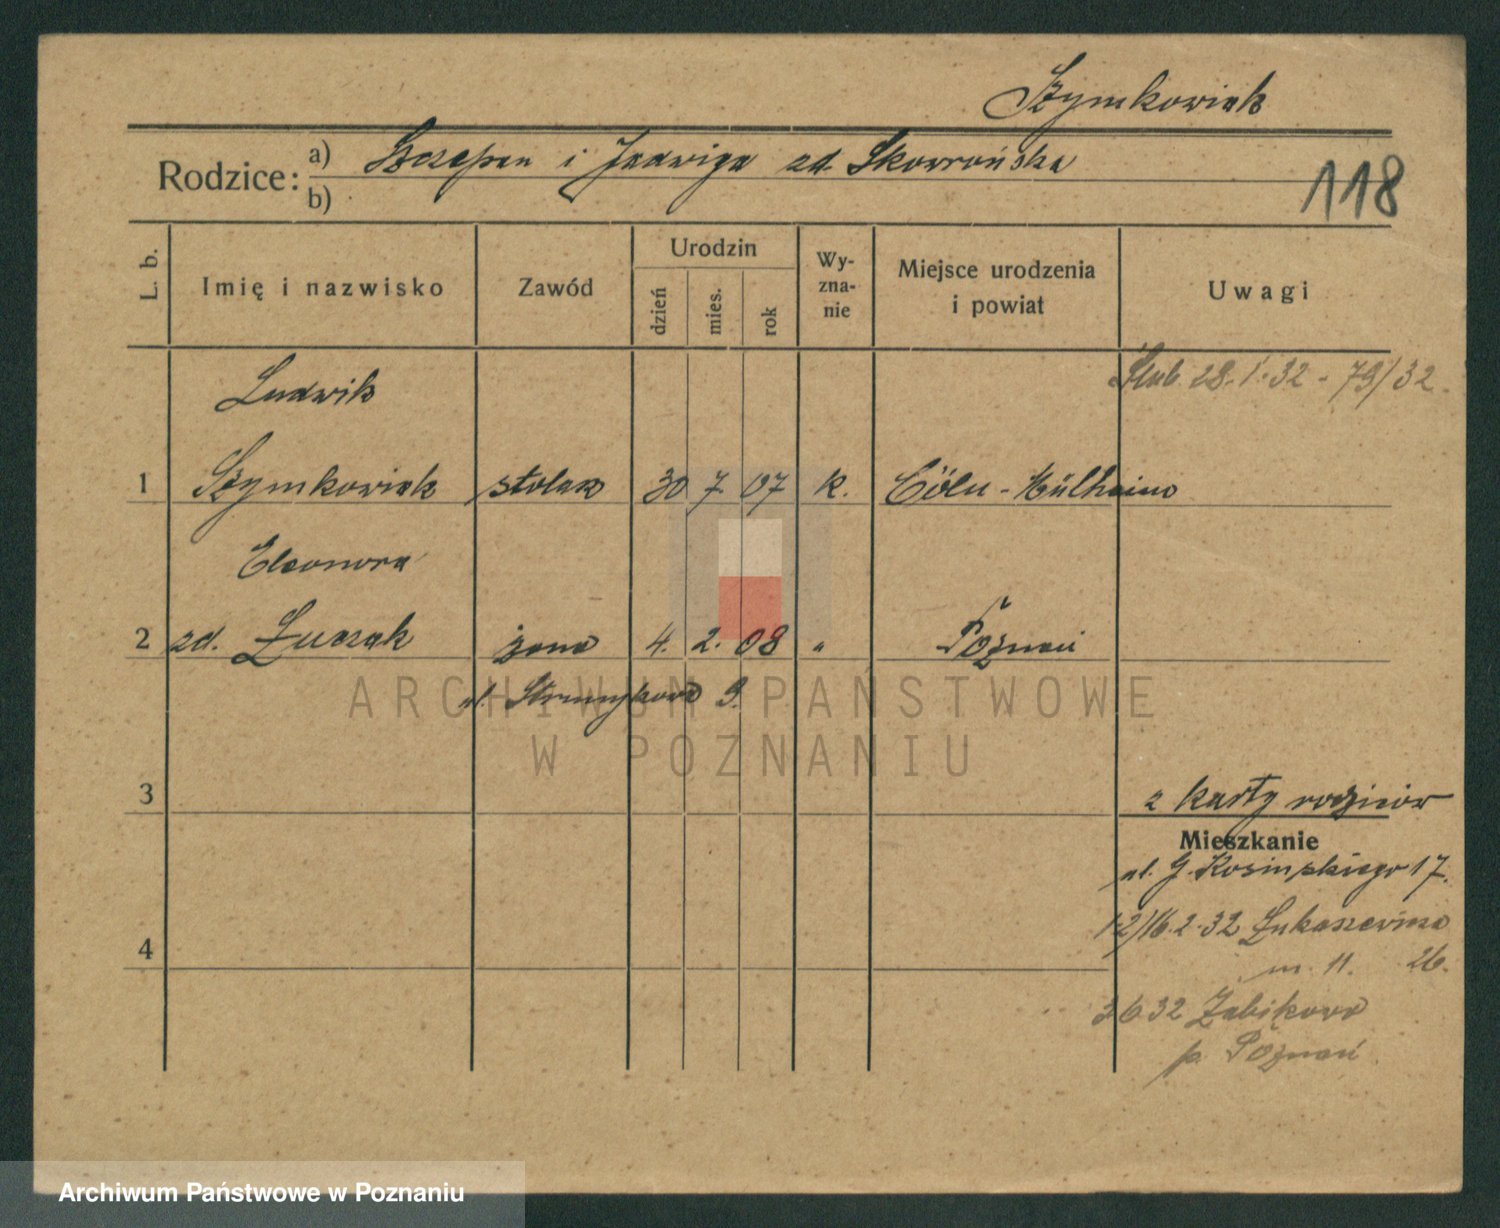 Szymkowiak
Rodzice: a) Szczepan i Jadwiga zd. Skowrońska
b)
118
L. b.
Imię i nazwisko
Zawód
Urodzin
dzień
mies.
rok
Wy-
zna-
nie
Miejsce urodzenia
i powiat
Uwagi
Ślub 28.1.32 - 79/32.
Ludwik
1 Szymkowiak stolarz 30 7. 07 k. Cöln - Mülheim
Eleonora
2 zd. Łuczak żona 4. 2. 08 " Poznań
ul. Strumykowa 9.
ARCHIWUM PAŃSTWOWE
W POZNANIU
3
z karty rodziców
Mieszkanie
ul. G. Kosińskiego 17.
12/16.2.32 Łukaszewicza
m. 11. 26.
4
3 6 32 Żabikowo
p. Poznań
Archiwum Państwowe w Poznaniu